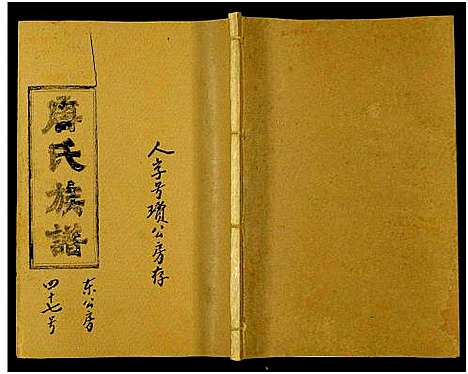 唐氏族譜
人字号瓊公房存
东公房
四十七号